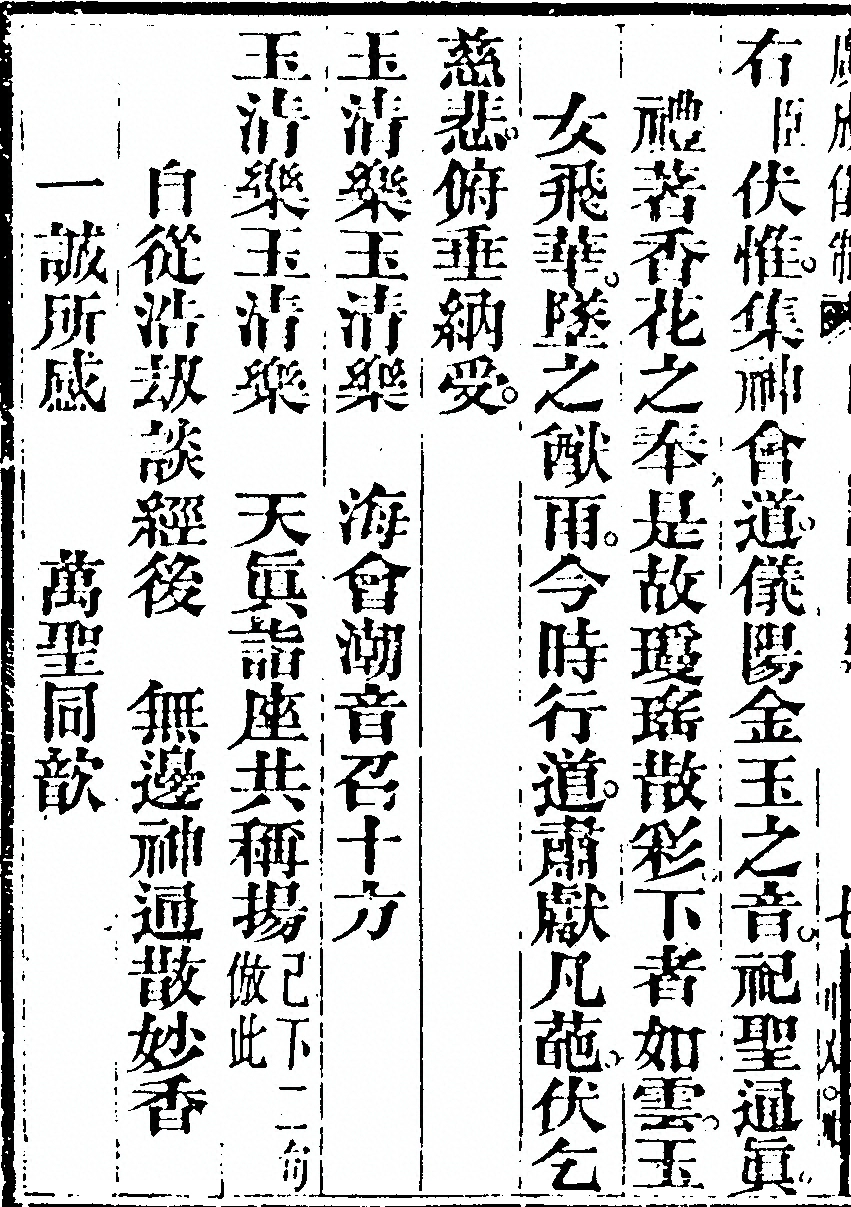 廣成儀制
右臣伏惟。集神會道。儀陽金玉之音。祀聖通眞。
禮著香花之奉。是故瓊瑤散彩。下者如雲。玉
女飛華。墜之猷雨。今時行道。肅獻凡葩。伏乞
慈悲。俯垂納受。
玉清樂玉清樂　海會潮音召十方
玉清樂玉清樂　天眞詣座共稱揚　已下二句倣此
自從浩劫談經後　無邊神通散妙香
一誠所感　萬聖同歆